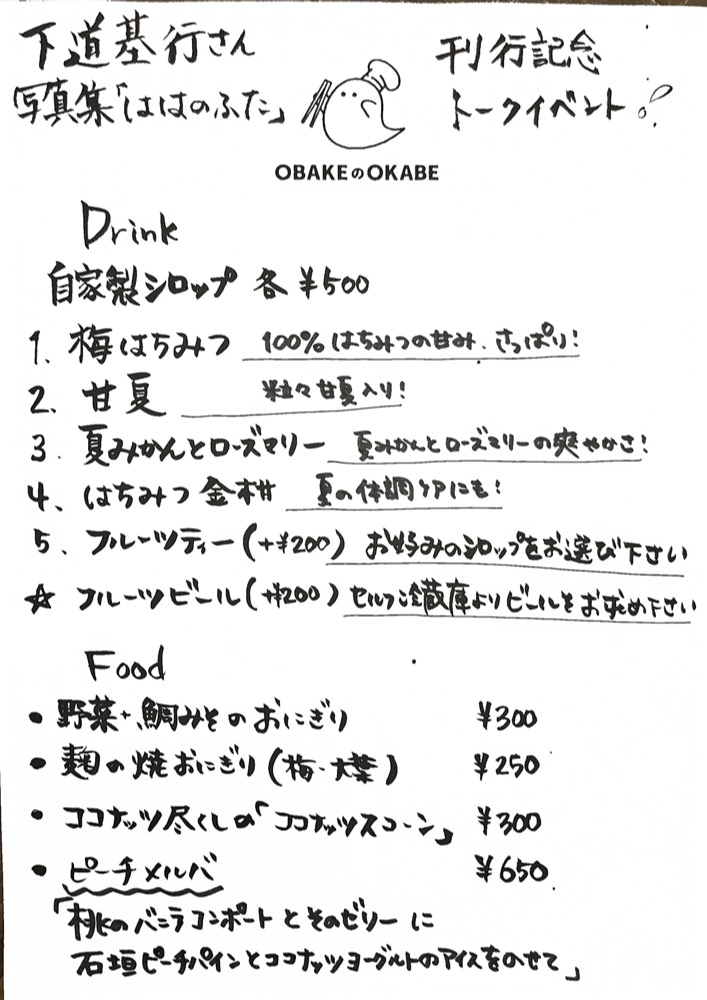 下道基行さん 刊行記念
写真集「ははのふた」 トークイベント!
OBAKEのOKABE
Drink
自家製シロップ 各 ¥500
1. 梅はちみつ 100%はちみつの甘み、さっぱり!
2. 甘夏 粒々甘夏入り!
3. 夏みかんとローズマリー 夏みかんとローズマリーの爽やかさ!
4. はちみつ金柑 夏の体調ケアにも!
5. フルーツティー(+¥200) お好みのシロップをお選び下さい
☆ フルーツビール(+¥200) セルフ冷蔵庫よりビールをお求め下さい
Food
• 野菜+鯛みそのおにぎり ¥300
• 麹の焼おにぎり(梅・大葉) ¥250
• ココナッツ尽くしの「ココナッツスコーン」 ¥300
• ピーチメルバ ¥650
「桃のバニラコンポートとそのゼリーに
石垣ピーチパインとココナッツヨーグルトのアイスをのせて」